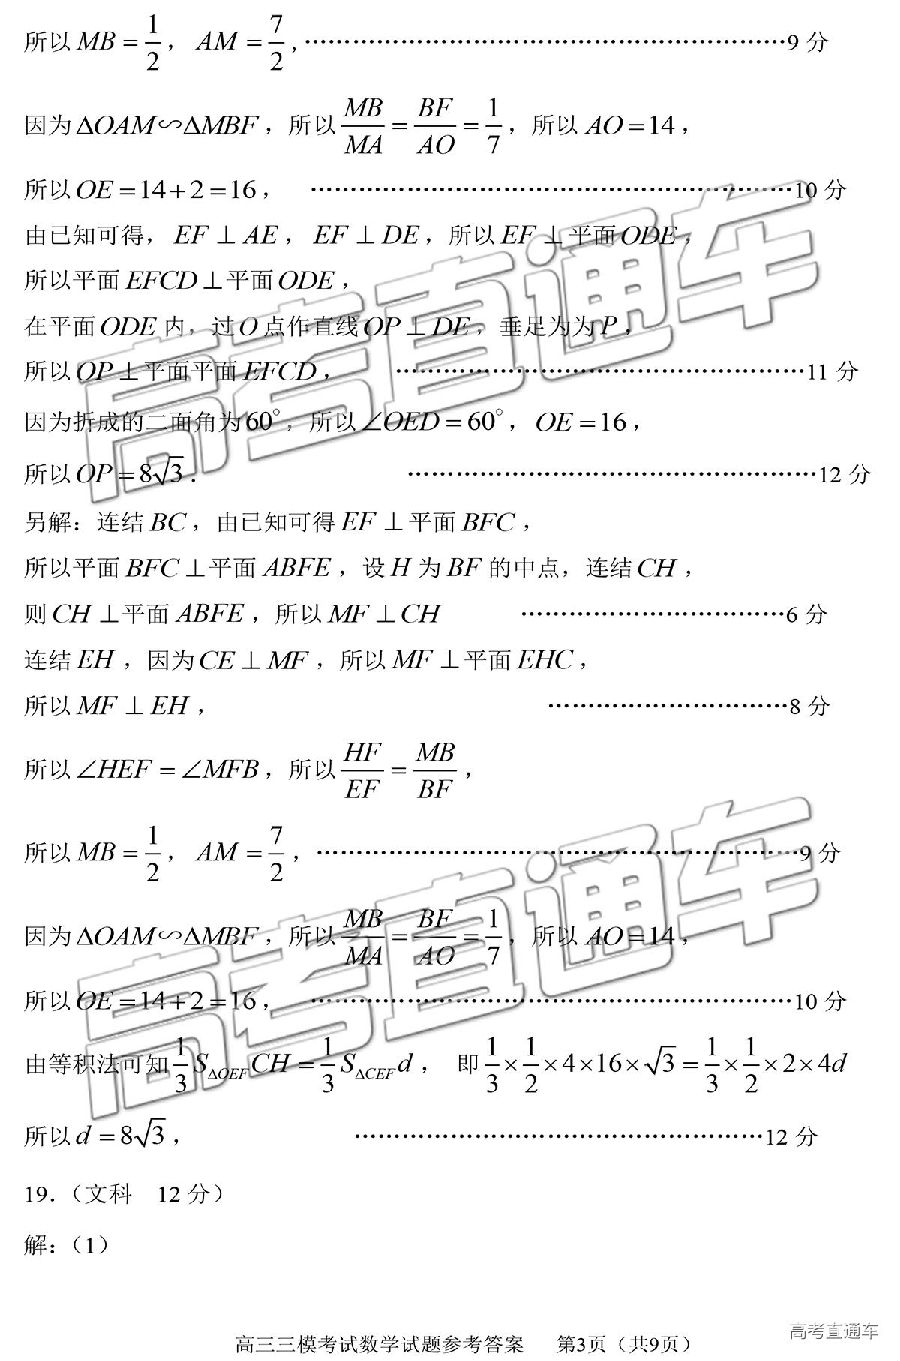 所以MB=1/2，AM=7/2，……………………………………………………9分
因为ΔOAM∽ΔMBF，所以MB/MA=BF/AO=1/7，所以AO=14，
所以OE=14+2=16，……………………………………………………10分
由已知可得，EF⊥AE，EF⊥DE，所以EF⊥平面ODE，
所以平面EFCD⊥平面ODE，
在平面ODE内，过O点作直线OP⊥DE，垂足为为P，
所以OP⊥平面平面EFCD，……………………………………………11分
因为折成的二面角为60°，所以∠OED=60°，OE=16，
所以OP=8√3．……………………………………………12分
另解：连结BC，由已知可得EF⊥平面BFC，
所以平面BFC⊥平面ABFE，设H为BF的中点，连结CH，
则CH⊥平面ABFE，所以MF⊥CH ……………………………6分
连结EH，因为CE⊥MF，所以MF⊥平面EHC，
所以MF⊥EH，…………………………8分
所以∠HEF=∠MFB，所以HF/EF=MB/BF，
所以MB=1/2，AM=7/2，……………………………………………………9分
因为ΔOAM∽ΔMBF，所以MB/MA=BF/AO=1/7，所以AO=14，
所以OE=14+2=16，……………………………………………………10分
由等积法可知1/3S△OEF CH=1/3S△CEF d，即1/3×1/2×4×16×√3=1/3×1/2×2×4d
所以d=8√3，……………………………………………12分
19．（文科 12分）
解：（1）
高三三模考试数学试题参考答案 第3页（共9页）
高考直通车
高考直通车
高考直通车